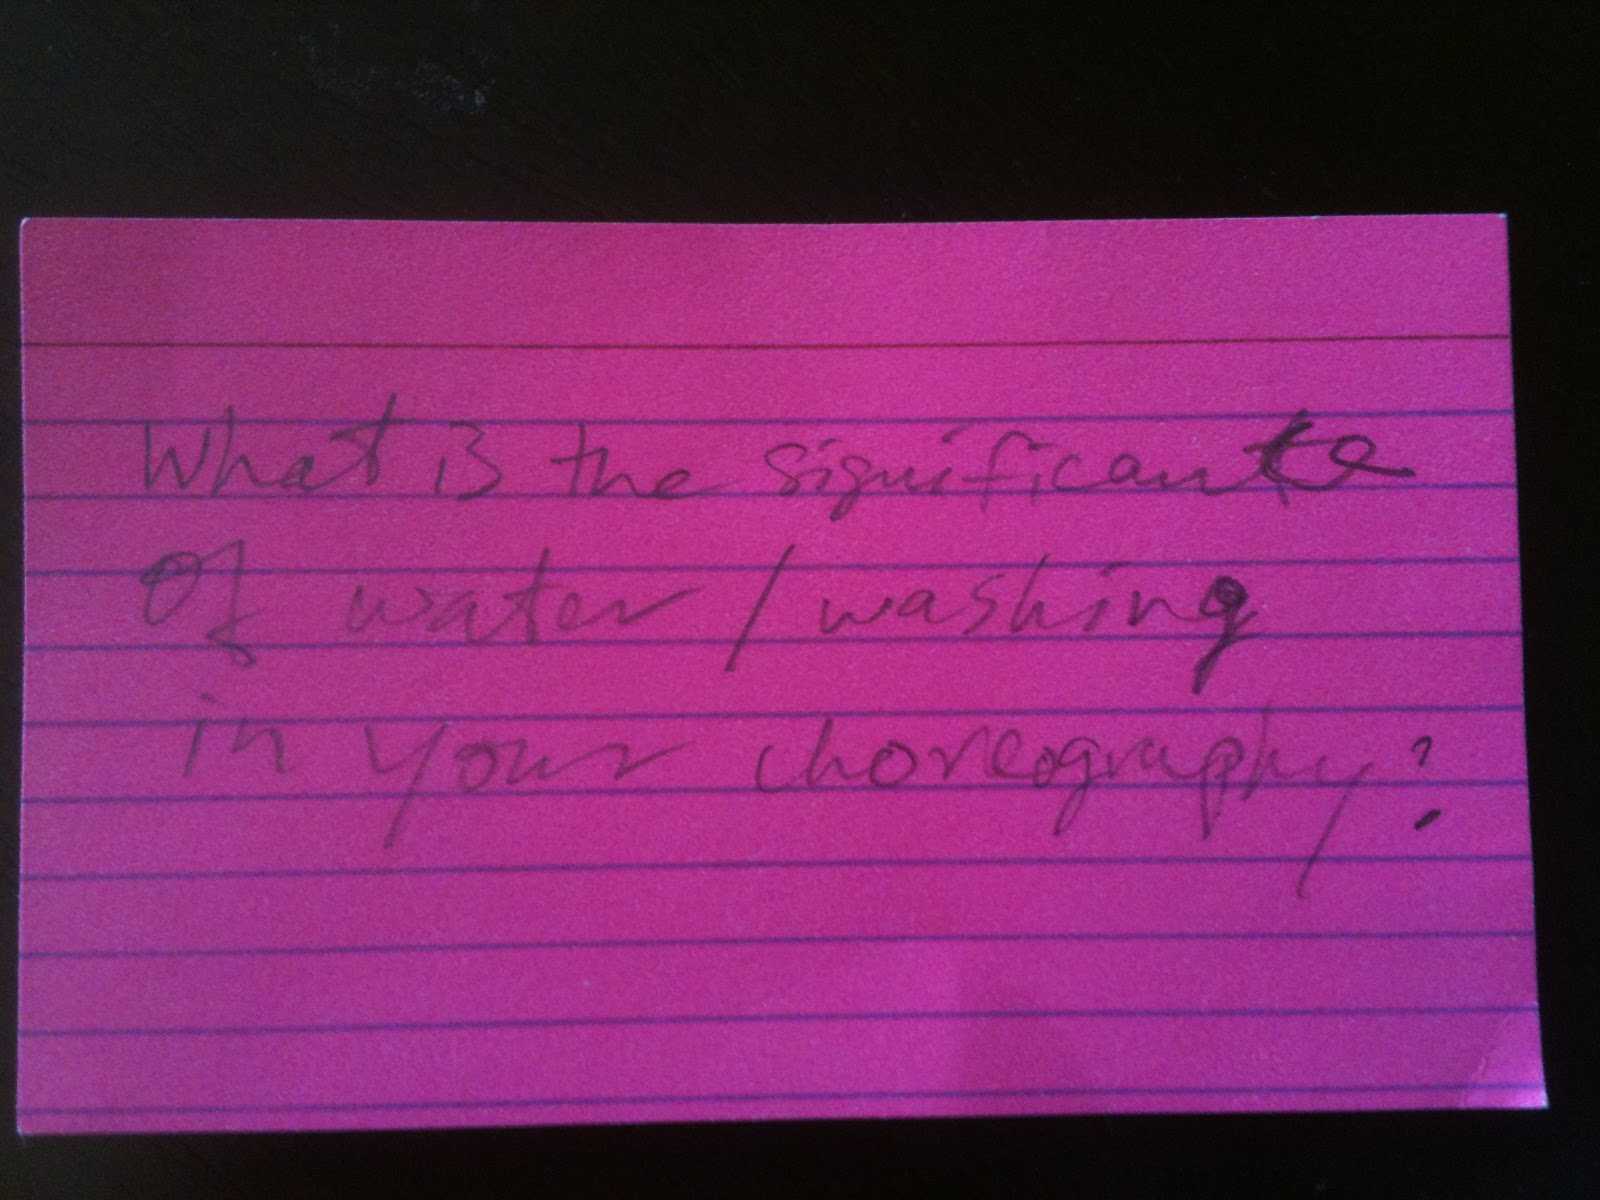 What is the significance
of water / washing
in your choreography?